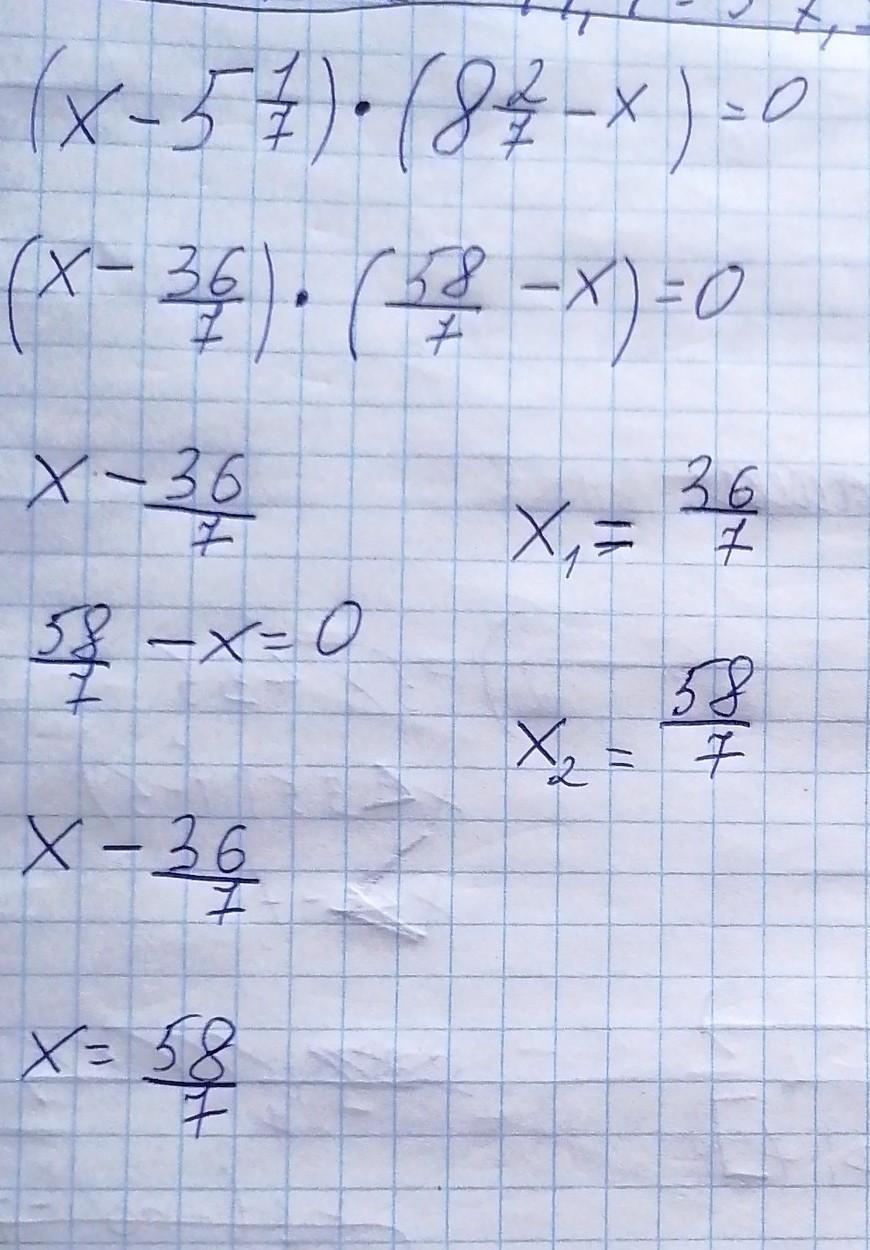 (x - 5 1/7) · (8 2/7 - x) = 0
(x - 36/7) · (58/7 - x) = 0
x - 36/7
x₁ = 36/7
58/7 - x = 0
x₂ = 58/7
x - 36/7
x = 58/7